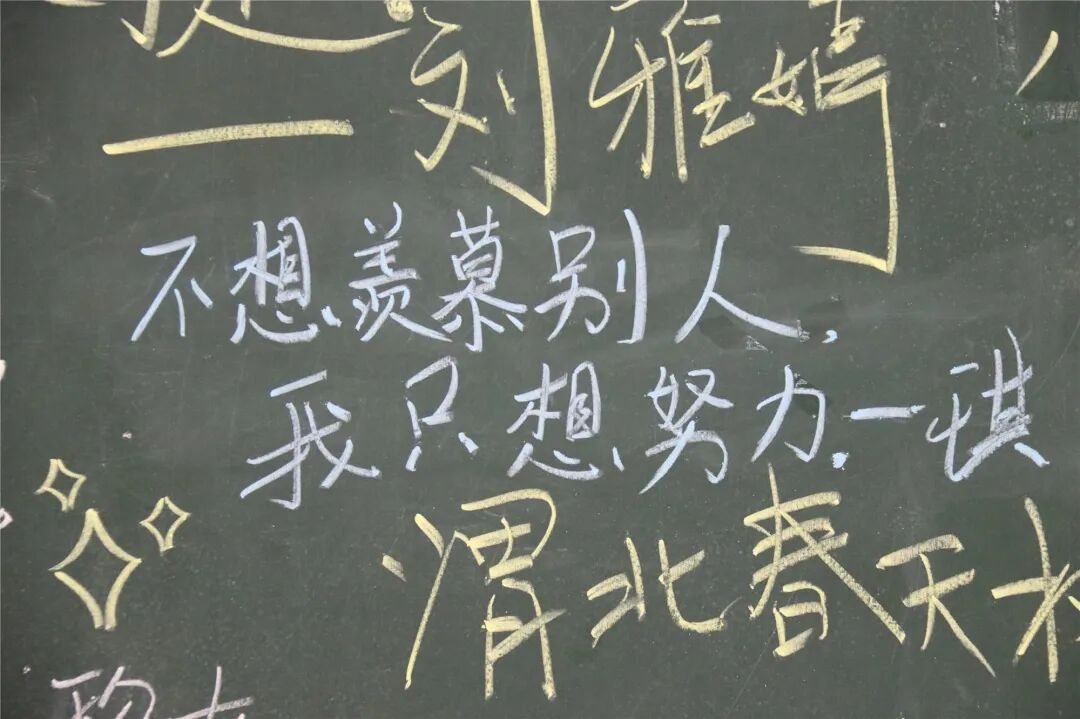 一刘雅婧
不想羡慕别人,
我只想努力.一琪
渭北春天